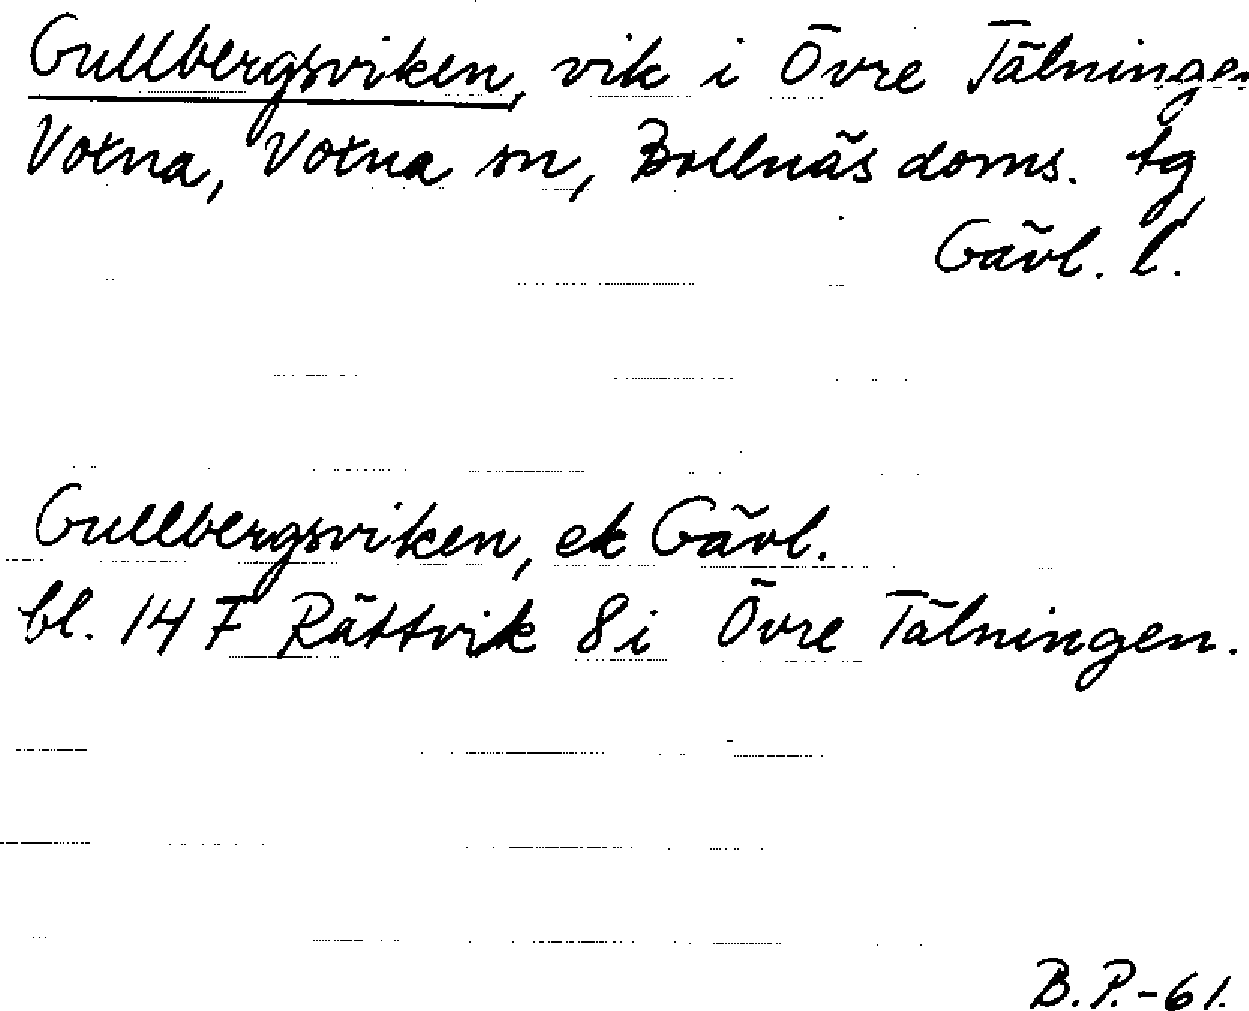 Gullbergsviken, vik i Övre Tälningen
Votna, Votna sn, Bollnäs doms. tg,
Gävl. l.
Gullbergsviken, ek Gävl.
bl. 14 F Rättvik 8 i Övre Tälningen.
B.P.-61.